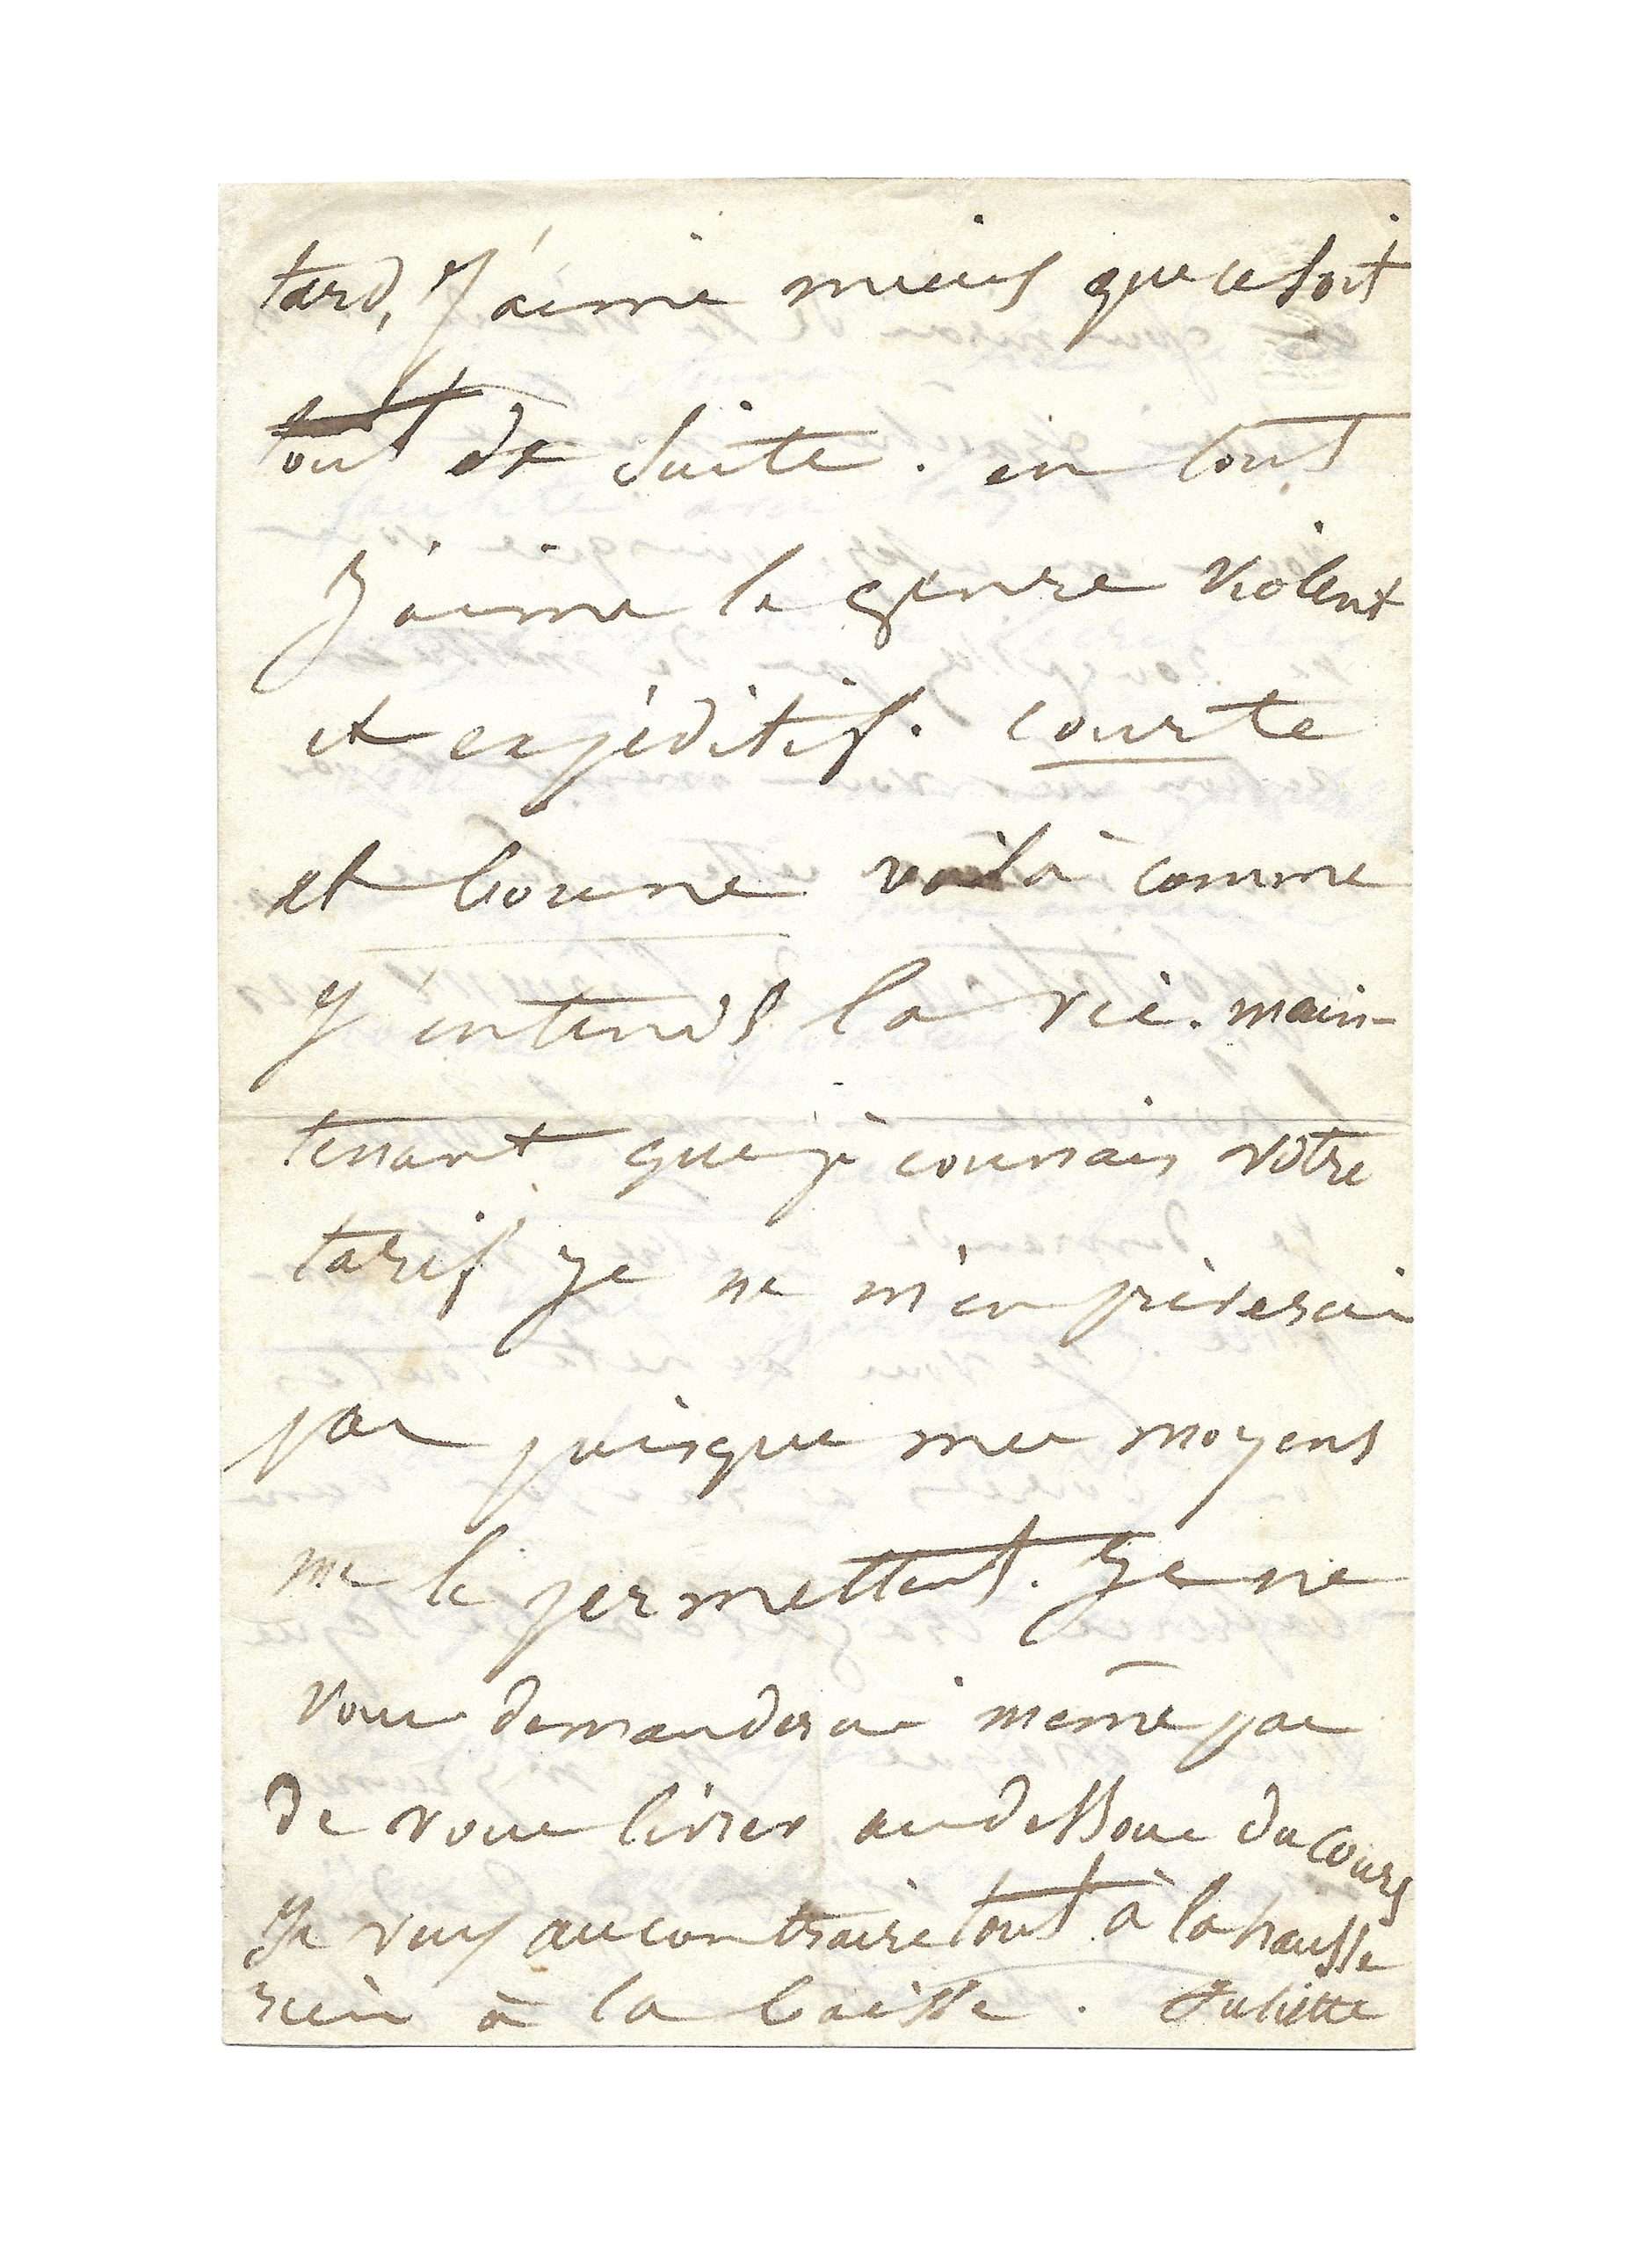 tard, j'aime mieux que ce soit
tout de suite. en tout
j'aime le genre violent
et expéditif. courte
et bonne voilà comme
j'entends la vie. main-
tenant que je connais votre
tarif je ne m'en priverai
pas puisque mes moyens
me le permettent. Je ne
vous demanderai même pas
de vous livrer au dessous du cours
Je veux au contraire tout à la hausse
rien à la baisse. Juliette